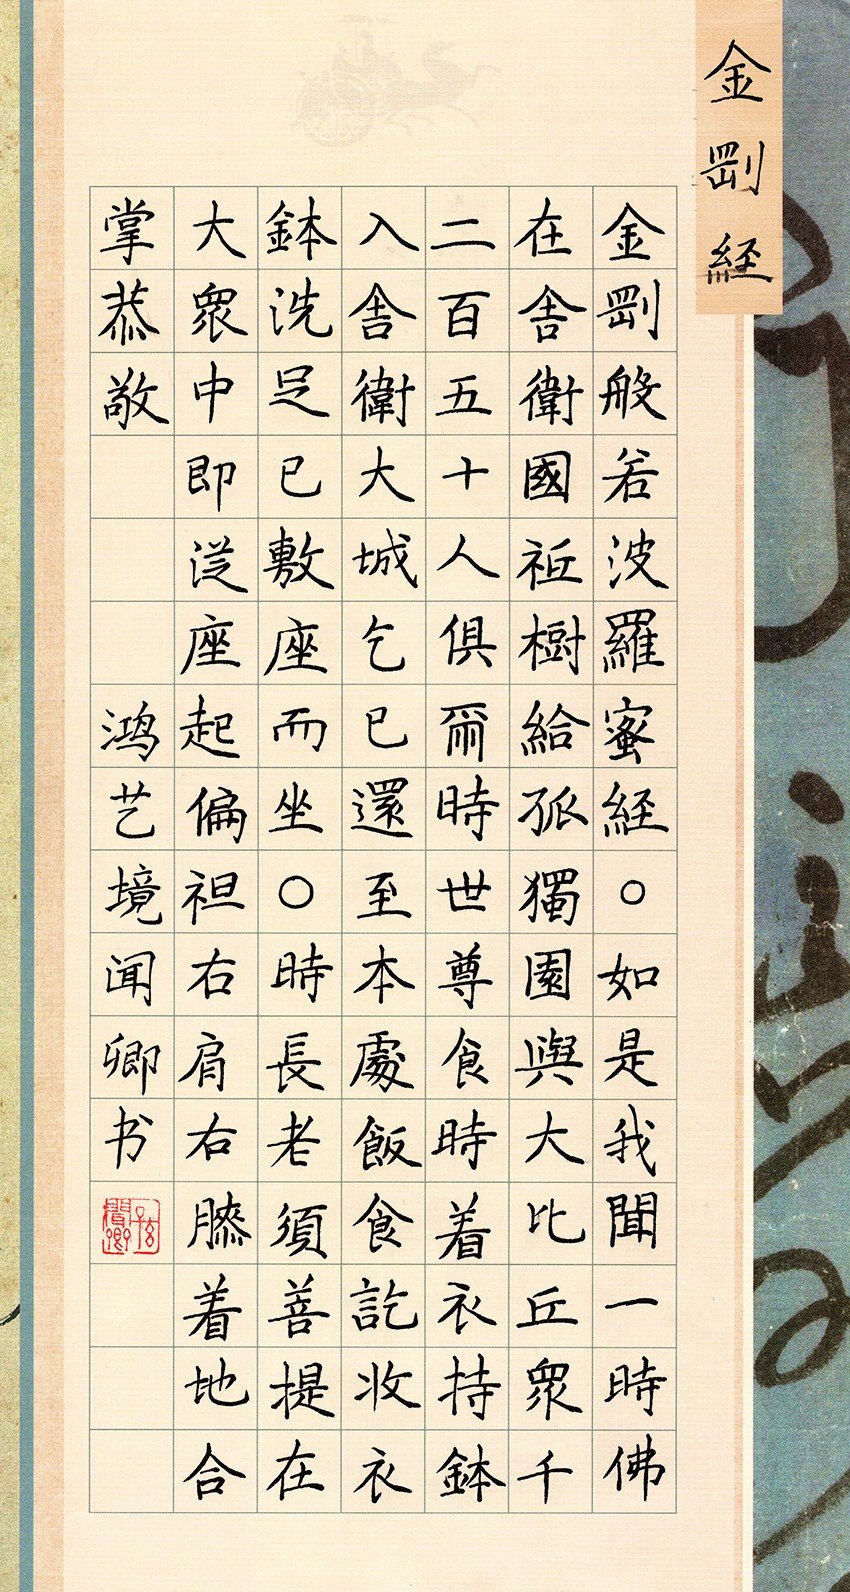 金剛經
金剛般若波羅蜜經○如是我聞一時佛
在舍衛國祇樹給孤獨園與大比丘眾千
二百五十人俱爾時世尊食時着衣持鉢
入舍衛大城乞已還至本處飯食訖收衣
鉢洗足已敷座而坐○時長老須善提在
大眾中即從座起偏袒右肩右膝着地合
掌恭敬
鸿艺境闻卿书